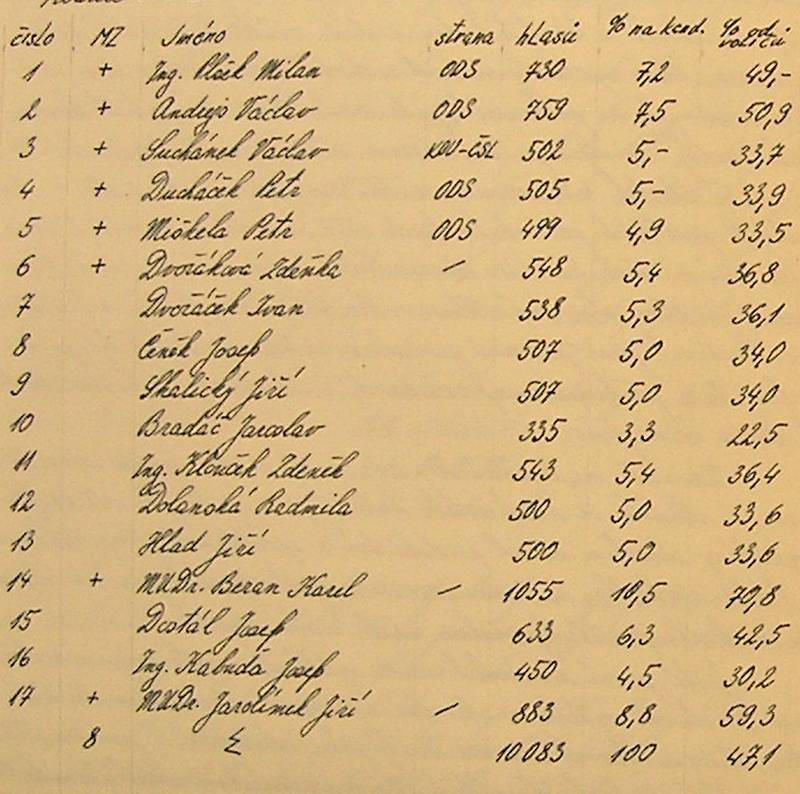 číslo MZ Jméno strana hlasů % na kand. % od voličů
1 + Ing. Plček Milan ODS 730 7,2 49,-
2 + Andrejs Václav ODS 759 7,5 50,9
3 + Suchánek Václav KDU-ČSL 502 5,- 33,7
4 + Ducháček Petr ODS 505 5,- 33,9
5 + Miškela Petr ODS 499 4,9 33,5
6 + Dvořáková Zdeňka - 548 5,4 36,8
7 Dvořáček Ivan 538 5,3 36,1
8 Čeněk Josef 507 5,0 34,0
9 Skalický Jiří 507 5,0 34,0
10 Bradáč Jaroslav 335 3,3 22,5
11 Ing. Klouček Zdeněk 543 5,4 36,4
12 Dolanská Radmila 500 5,0 33,6
13 Hlad Jiří 500 5,0 33,6
14 + MUDr. Beran Karel - 1055 10,5 70,8
15 Dostál Josef 633 6,3 42,5
16 Ing. Kabuďa Josef 450 4,5 30,2
17 + MUDr. Jarolímek Jiří - 883 8,8 59,3
8 Σ 10083 100 47,1